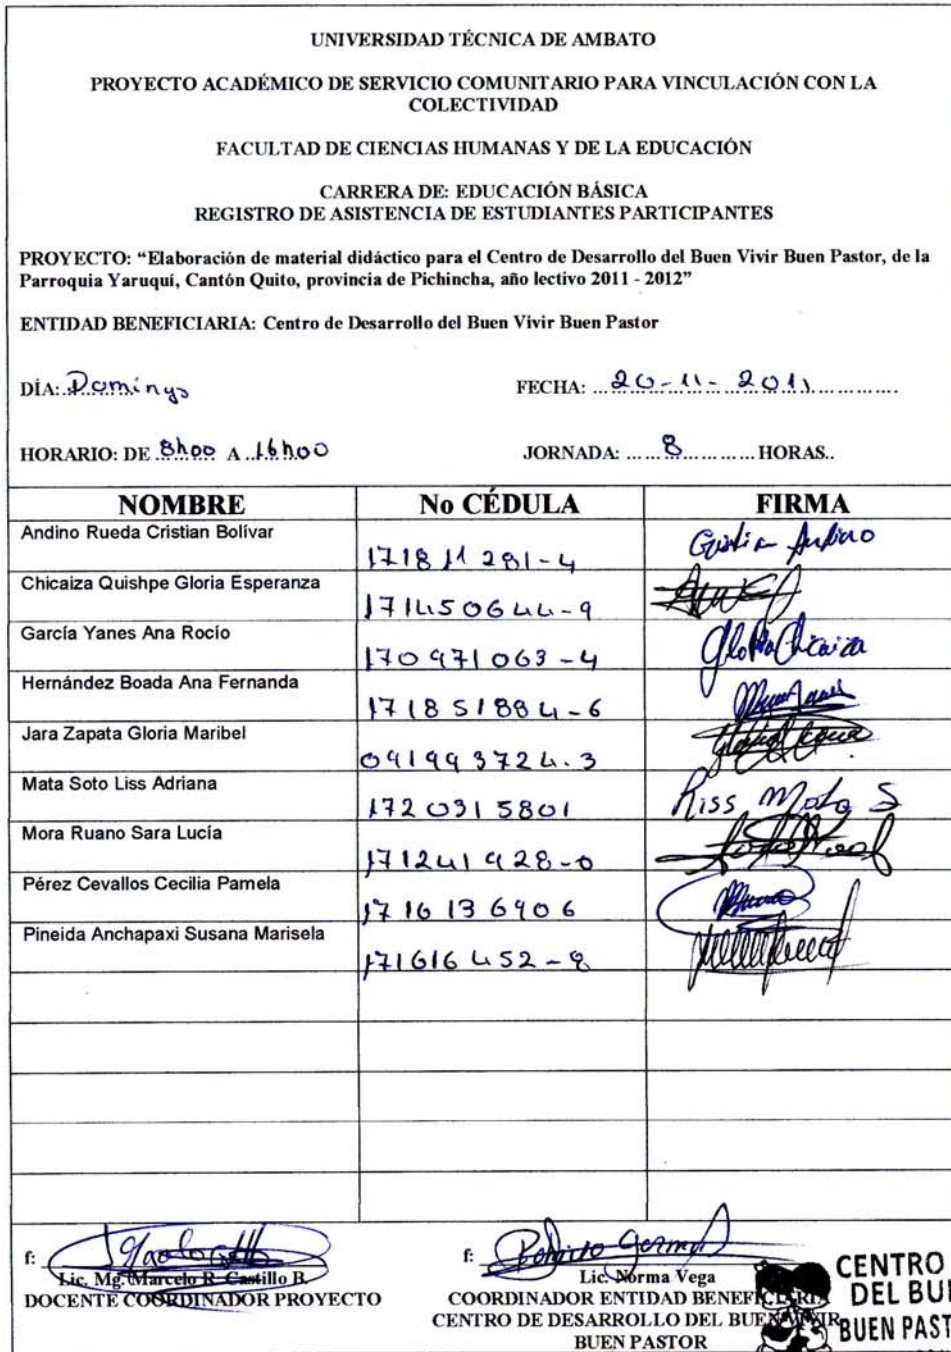 UNIVERSIDAD TÉCNICA DE AMBATO
PROYECTO ACADÉMICO DE SERVICIO COMUNITARIO PARA VINCULACIÓN CON LA
COLECTIVIDAD
FACULTAD DE CIENCIAS HUMANAS Y DE LA EDUCACIÓN
CARRERA DE: EDUCACIÓN BÁSICA
REGISTRO DE ASISTENCIA DE ESTUDIANTES PARTICIPANTES
PROYECTO: “Elaboración de material didáctico para el Centro de Desarrollo del Buen Vivir Buen Pastor, de la
Parroquia Yaruquí, Cantón Quito, provincia de Pichincha, año lectivo 2011 - 2012”
ENTIDAD BENEFICIARIA: Centro de Desarrollo del Buen Vivir Buen Pastor
DÍA: Domingo FECHA: 20-11-2011
HORARIO: DE 8h00 A 16h00 JORNADA: 8 HORAS..
NOMBRE No CÉDULA FIRMA
Andino Rueda Cristian Bolívar 171811281-4 Cristian Andino
Chicaiza Quishpe Gloria Esperanza 171450644-9
García Yanes Ana Rocío 170971063-4 Gloria Chicaiza
Hernández Boada Ana Fernanda 171851884-6
Jara Zapata Gloria Maribel 091993724.3
Mata Soto Liss Adriana 1720315801 Liss Mata S
Mora Ruano Sara Lucía 171241928-0
Pérez Cevallos Cecilia Pamela 1716136906
Pineida Anchapaxi Susana Marisela 171616452-8
f: f:
Lic. Mg. Marcelo R. Castillo B. Lic. Norma Vega
DOCENTE COORDINADOR PROYECTO COORDINADOR ENTIDAD BENEFICIARIA
CENTRO DE DESARROLLO DEL BUEN VIVIR
BUEN PASTOR
CENTRO
DEL BUE
BUEN PAST